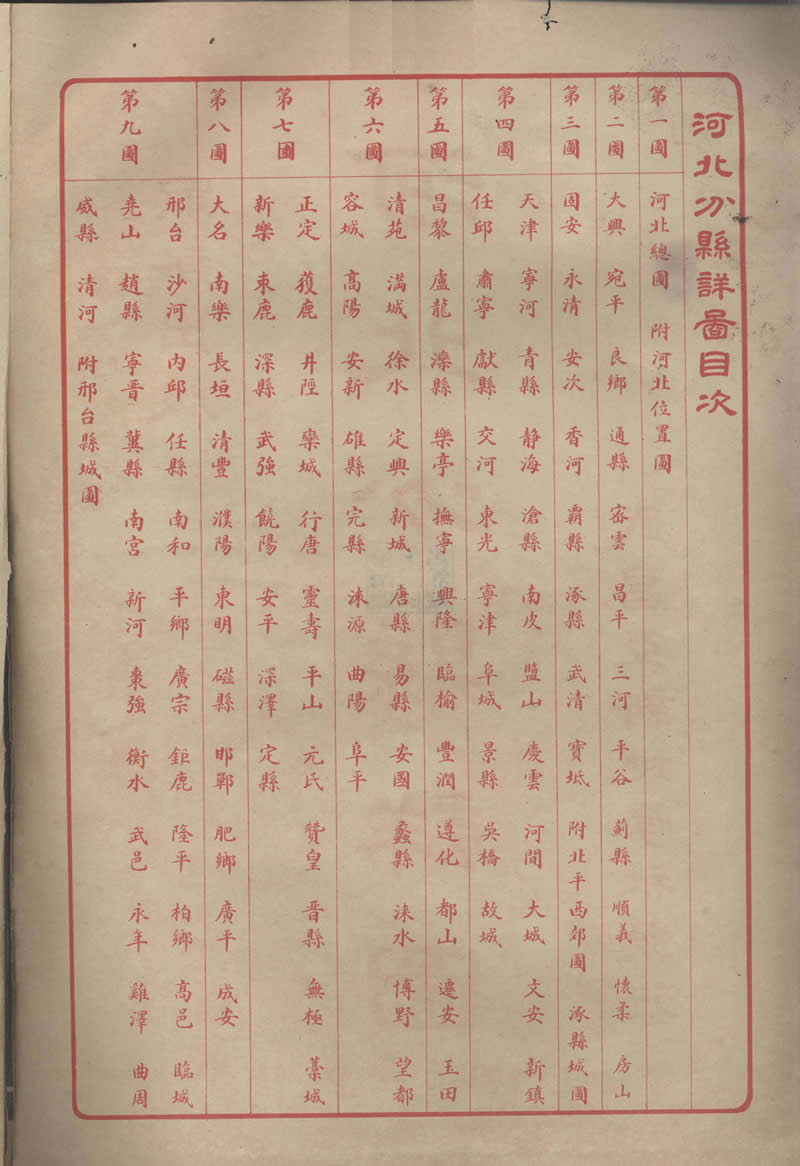 河北分縣詳圖目次
第一圖 河北總圖 附河北位置圖
第二圖 大興 宛平 良鄉 通縣 密雲 昌平 三河 平谷 薊縣 順義 懷柔 房山
第三圖 固安 永清 安次 香河 霸縣 涿縣 武清 寳坻 附北平西郊圖 涿縣城圖
第四圖 天津 寧河 青縣 静海 滄縣 南皮 鹽山 慶雲 河間 大城 文安 新鎮
任邱 肅寧 獻縣 交河 東光 寧津 阜城 景縣 吳橋 故城
第五圖 昌黎 盧龍 灤縣 樂亭 撫寧 興隆 臨榆 豐潤 遵化 都山 遷安 玉田
第六圖 清苑 滿城 徐水 定興 新城 唐縣 易縣 安國 蠡縣 淶水 博野 望都
容城 高陽 安新 雄縣 完縣 淶源 曲陽 阜平
第七圖 正定 獲鹿 井陘 欒城 行唐 靈壽 平山 元氏 贊皇 晋縣 無極 藁城
新樂 束鹿 深縣 武強 饒陽 安平 深澤 定縣
第八圖 大名 南樂 長垣 清豐 濮陽 東明 磁縣 邯鄲 肥鄉 廣平 成安
第九圖 邢台 沙河 内邱 任縣 南和 平鄉 廣宗 鉅鹿 隆平 柏鄉 高邑 臨城
堯山 趙縣 寧晋 冀縣 南宮 新河 棗強 衡水 武邑 永年 雞澤 曲周
威縣 清河 附邢台縣城圖